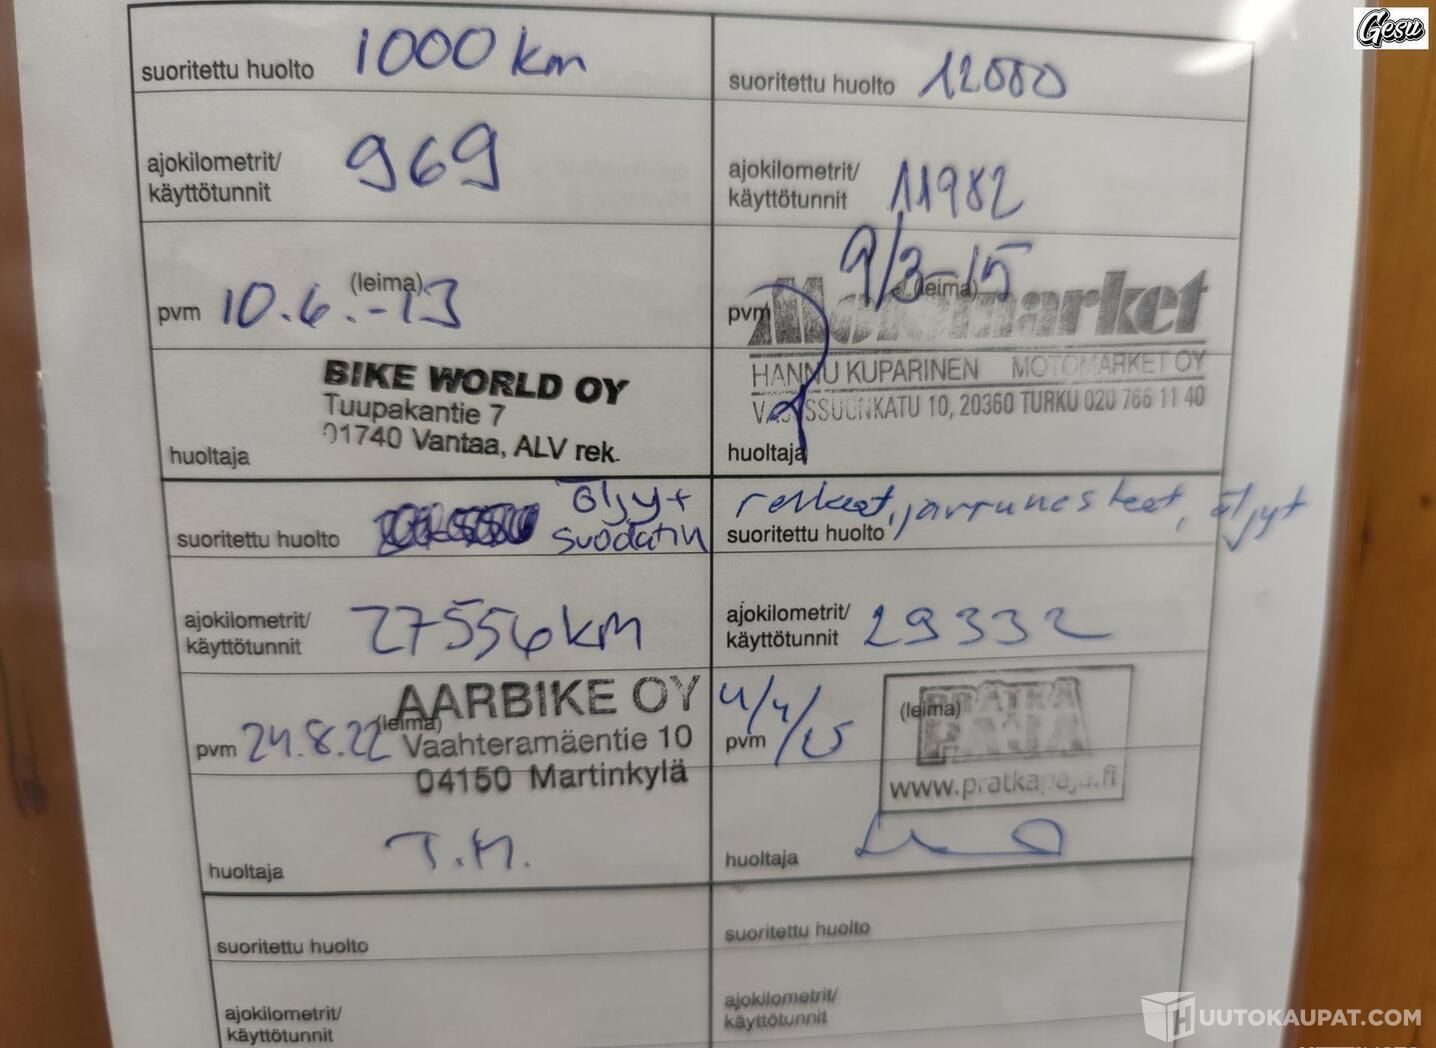 Gesu
suoritettu huolto 1000 km
ajokilometrit/
käyttötunnit 969
(leima)
pvm 10.6.-13
BIKE WORLD OY
Tuupakantie 7
01740 Vantaa, ALV rek.
huoltaja
suoritettu huolto 12000
ajokilometrit/
käyttötunnit 11982
9/3-15
(leima)
pvm Motomarket
HANNU KUPARINEN MOTOMARKET OY
20360 TURKU 020 766 11 40
huoltaja
öljyt
suoritettu huolto suodatin
ajokilometrit/
käyttötunnit 27556 km
AARBIKE OY
(leima)
pvm 24.8.22 Vaahteramäentie 10
04150 Martinkylä
huoltaja T.M.
renkaat, jarrunesteet, öljyt
suoritettu huolto
ajokilometrit/
käyttötunnit 29332
(leima) PRÄTKÄ
pvm PAJA
www.pratkapaja.fi
huoltaja
suoritettu huolto
ajokilometrit/
käyttötunnit
suoritettu huolto
ajokilometrit/
käyttötunnit
HUUTOKAUPAT.COM